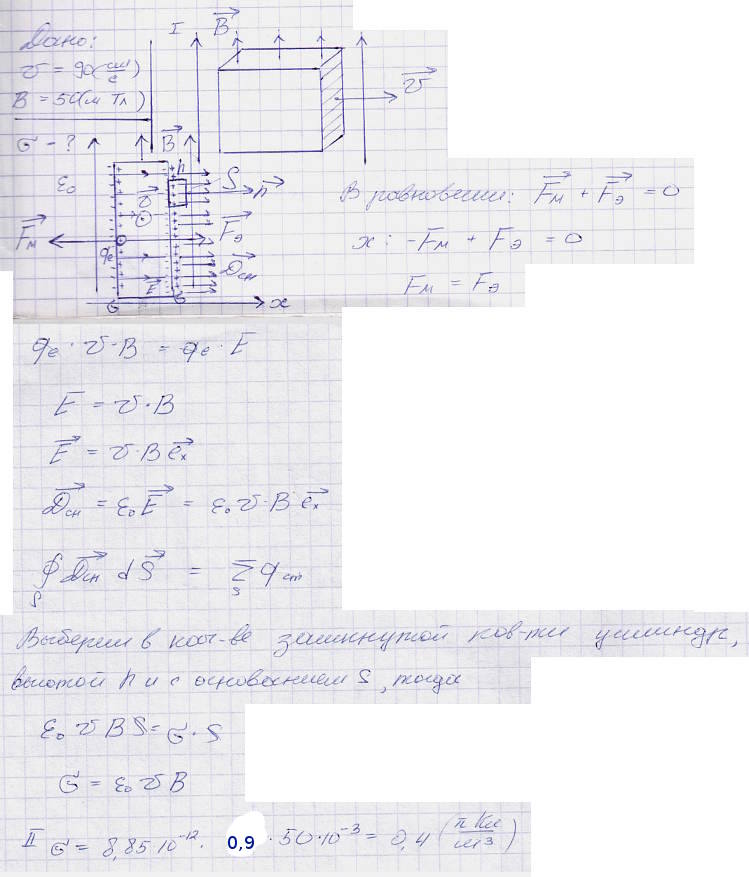 Дано:
v = 90 (см/с)
B = 50 (м Тл)
σ - ?
I
B⃗
v⃗
ε₀
B⃗
h
S
n⃗
v⃗
F⃗м
F⃗э
qe
D⃗сн
E⃗
σ
σ
x
В равновесии: F⃗м + F⃗э = 0
x: -Fм + Fэ = 0
Fм = Fэ
qe · v · B = qe · E
E = v · B
E⃗ = v · B e⃗x
D⃗сн = ε₀ E⃗ = ε₀ v · B e⃗x
∮S D⃗сн dS⃗ = ΣS qст
Выберем в кач-ве замкнутой пов-ти цилиндр,
высотой h и с основанием S, тогда
ε₀ v B S = σ · S
σ = ε₀ v B
II σ = 8,85·10⁻¹² · 0,9 · 50·10⁻³ = 0,4 (пКл/м³)